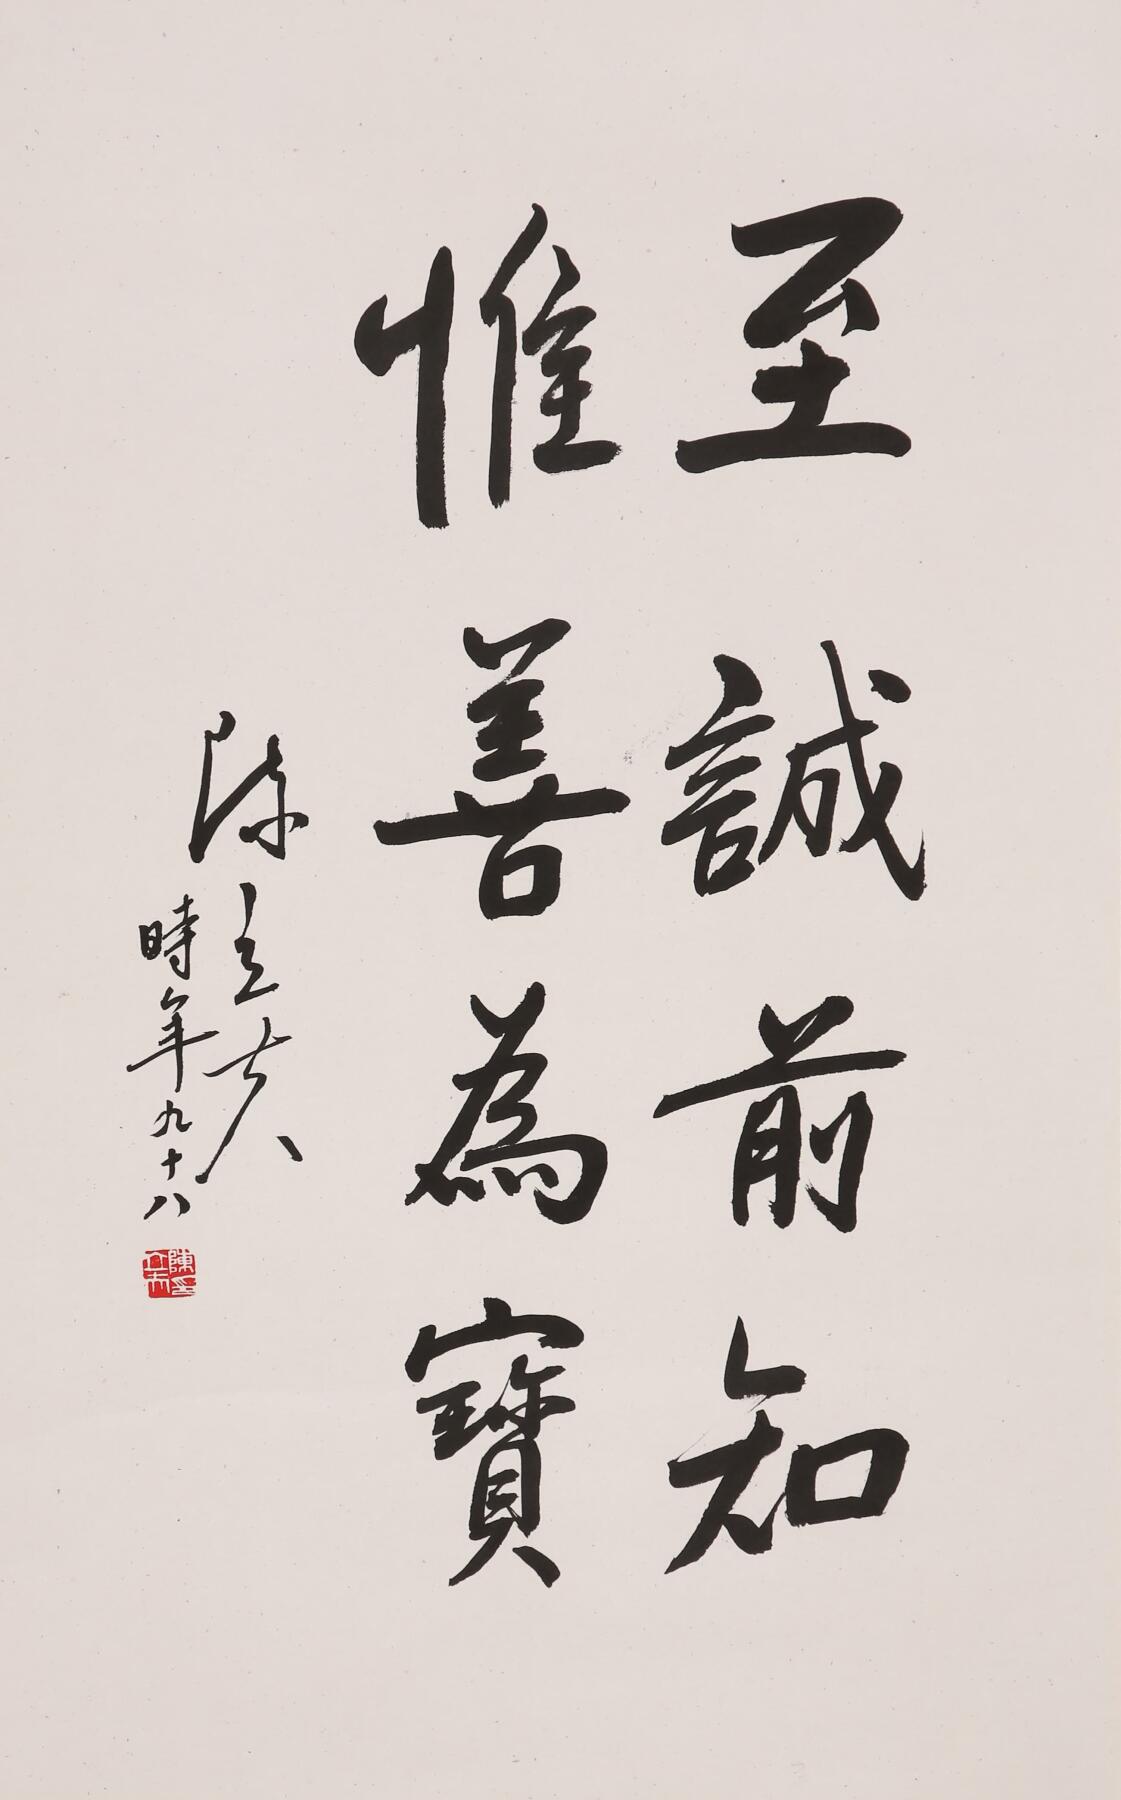 至誠前知
惟善為寶
陳立夫
時年九十八
陳立夫印